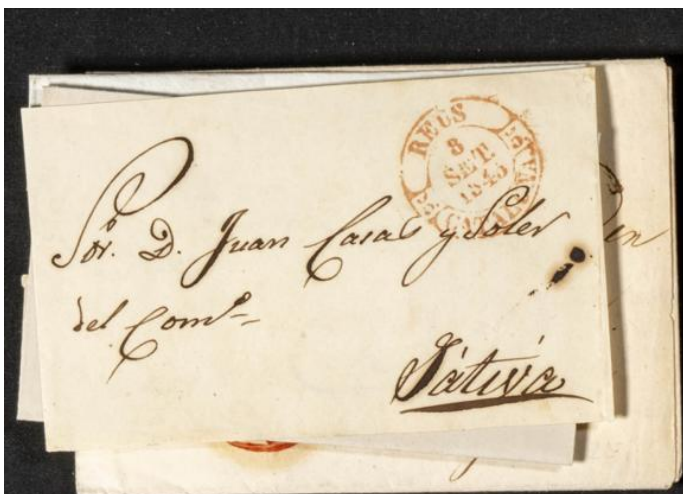 REUS
8
SET.
1845
CATALUÑA
Sor. D. Juan Casas y Soler
del Como.
Játiva